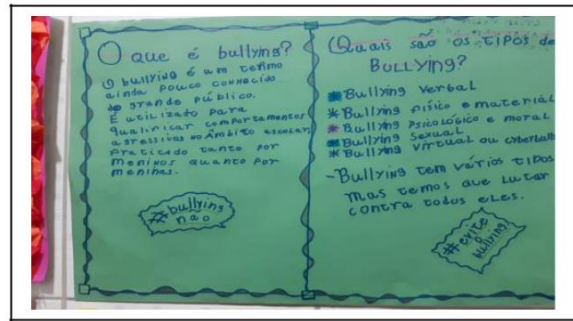 O que é bullying?
O bullying é um termo
ainda pouco conhecido
do grande público.
É utilizado para
qualificar comportamentos
agressivos no Âmbito escolar,
praticado tanto por
meninos quanto por
meninas.
#bullying
não
Quais são os tipos de
BULLYing?
*Bullying verbal
*Bullying físico e material
*Bullying Psicológico e moral
*Bullying sexual
*Bullying virtual ou cyberbull
-Bullying tem vários tipos
mas temos que lutar
contra todos eles.
#evite
o
bullying